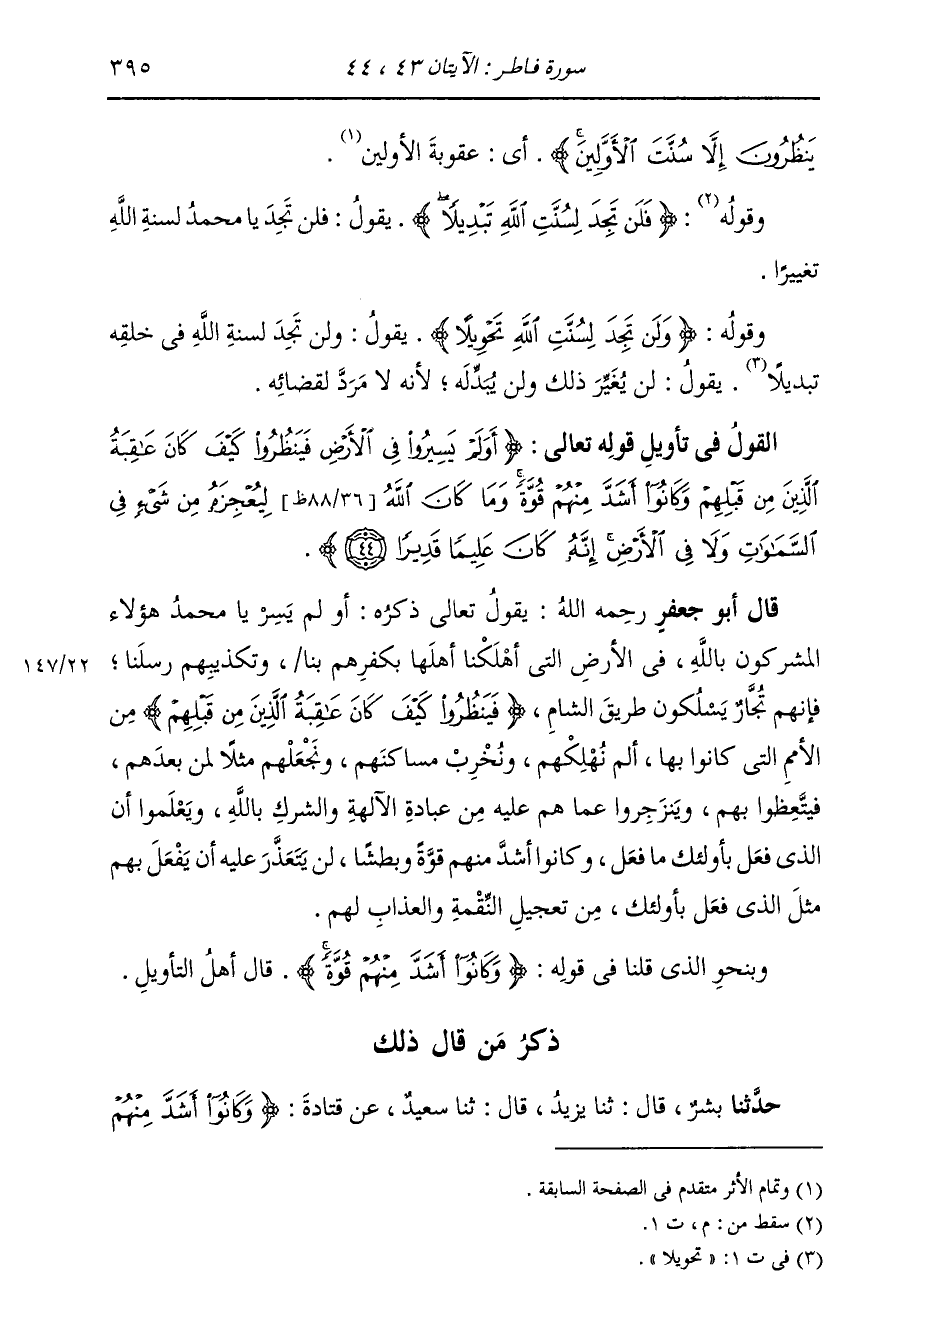 سورة فاطر : الآيتان ٤٣ ، ٤٤ ٣٩٥
يَنظُرُونَ إِلَّا سُنَّتَ ٱلْأَوَّلِينَۚ ﴾ . أى : عقوبةَ الأولين(١) .
وقولُه(٢) : ﴿ فَلَن تَجِدَ لِسُنَّتِ ٱللَّهِ تَبْدِيلًاۖ ﴾ . يقولُ : فلن تَجِدَ يا محمدُ لسنةِ اللَّهِ
تغييرًا .
وقولُه : ﴿ وَلَن تَجِدَ لِسُنَّتِ ٱللَّهِ تَحْوِيلًا ﴾ . يقولُ : ولن تَجِدَ لسنةِ اللَّهِ فى خلقِه
تبديلًا(٣) . يقولُ : لن يُغَيِّرَ ذلك ولن يُبَدِّلَه ؛ لأنه لا مَرَدَّ لقضائِه .
القولُ فى تأويلِ قولِه تعالى : ﴿ أَوَلَمْ يَسِيرُوا۟ فِى ٱلْأَرْضِ فَيَنظُرُوا۟ كَيْفَ كَانَ عَٰقِبَةُ
ٱلَّذِينَ مِن قَبْلِهِمْ وَكَانُوٓا۟ أَشَدَّ مِنْهُمْ قُوَّةًۚ وَمَا كَانَ ٱللَّهُ [٨٨/٣٦ظ] لِيُعْجِزَهُۥ مِن شَىْءٍ فِى
ٱلسَّمَٰوَٰتِ وَلَا فِى ٱلْأَرْضِۚ إِنَّهُۥ كَانَ عَلِيمًا قَدِيرًا ﴿٤٤﴾ ﴾ .
قال أبو جعفرٍ رحِمه اللهُ : يقولُ تعالى ذكرُه : أو لم يَسِرْ يا محمدُ هؤلاء
المشركون باللَّهِ ، فى الأرضِ التى أهْلَكْنا أهلَها بكفرِهم بنا/ ، وتكذيبِهم رسلَنا ؛ ١٤٧/٢٢
فإنهم تُجَّارٌ يَسْلُكون طريقَ الشامِ ، ﴿ فَيَنظُرُوا۟ كَيْفَ كَانَ عَٰقِبَةُ ٱلَّذِينَ مِن قَبْلِهِمْ ﴾ مِن
الأممِ التى كانوا بها ، ألم نُهْلِكْهم ، ونُخْرِبْ مساكنَهم ، ونَجْعَلْهم مثلًا لمن بعدَهم ،
فيتَّعِظوا بهم ، ويَنزَجِروا عما هم عليه مِن عبادةِ الآلهةِ والشركِ باللَّهِ ، ويَعْلَموا أن
الذى فعَل بأولئك ما فعَل ، وكانوا أشدَّ منهم قوَّةً وبطشًا ، لن يَتَعذَّرَ عليه أن يَفْعَلَ بهم
مثلَ الذى فعَل بأولئك ، مِن تعجيلِ النِّقْمةِ والعذابِ لهم .
وبنحوِ الذى قلنا فى قولِه : ﴿ وَكَانُوٓا۟ أَشَدَّ مِنْهُمْ قُوَّةًۚ ﴾ . قال أهلُ التأويلِ .
ذكرُ مَن قال ذلك
حدَّثنا بشرٌ ، قال : ثنا يزيدُ ، قال : ثنا سعيدٌ ، عن قتادةَ : ﴿ وَكَانُوٓا۟ أَشَدَّ مِنْهُمْ
(١) وتمام الأثر متقدم فى الصفحة السابقة .
(٢) سقط من : م ، ت ١.
(٣) فى ت ١: « تحويلا » .